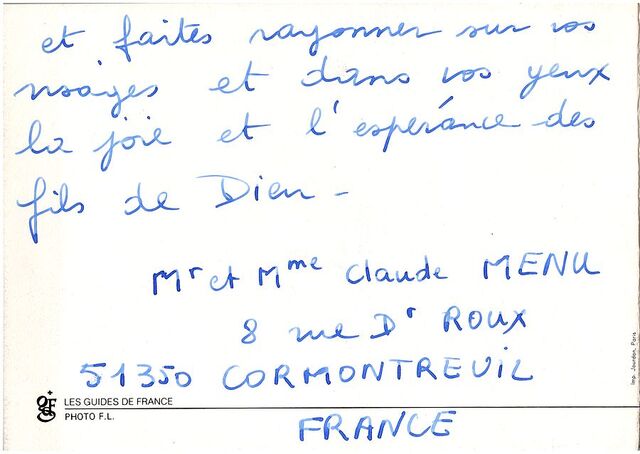 et faites rayonner sur vos
visages et dans vos yeux
la joie et l'espérance des
fils de Dieu -
Mr et Mme Claude MENU
8 rue Dr ROUX
51350 CORMONTREUIL
FRANCE
LES GUIDES DE FRANCE
PHOTO F.L.
Imp. Jourdan, Paris